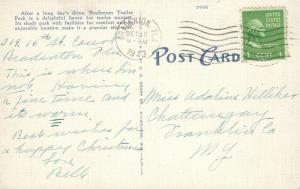 After a long day's drive, Bradenton Trailer
Park is a delightful haven for trailer tourists.
Its shady park with facilities for comfort and
enjoyable location make it a popular
POST CARD
BRADENTON, FLA.
DEC 20
1943
1 CENT 1
319. 16 St. Court
Bradenton Fla
This is where I'm
not. Having
a fine time and
its warm.
Best wishes for
a happy Christmas
Love
Bell
Miss Adaline Hilliker
Chateaugay
Franklin Co
N.Y.